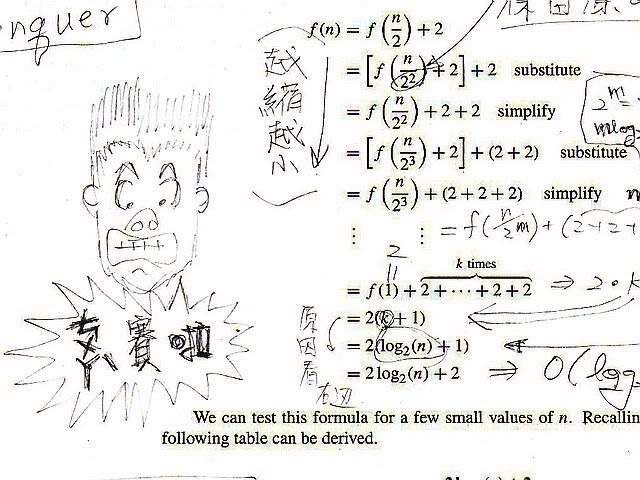 nquer
f(n) = f(n/2) + 2
= [f(n/2²) + 2] + 2 substitute
= f(n/2²) + 2 + 2 simplify
= [f(n/2³) + 2] + (2 + 2) substitute
= f(n/2³) + (2 + 2 + 2) simplify
⋮ ⋮ = f(n/2m) + (2+2+
2
k times
= f(1) + 2 + ⋯ + 2 + 2 ⇒ 2·k
= 2(k + 1)
= 2(log₂(n) + 1)
= 2 log₂(n) + 2 ⇒ O(log
越縮越小
2^m =
m log
原因看
右边
賽
We can test this formula for a few small values of n. Recallin
following table can be derived.